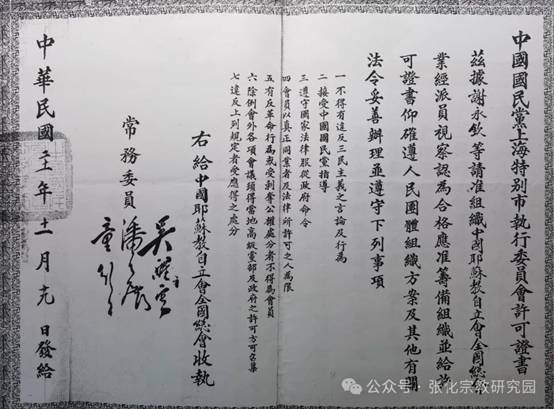 中國國民黨上海特別市執行委員會許可證書
茲據謝永欽等請准組織中國耶穌教自立會全國總會
業經派員視察認為合格應准籌備組織並給許
可證書仰確遵人民團體組織方案及其他有關
法令妥善辦理並遵守下列事項
一不得有違反三民主義之言論及行為
二接受中國國民黨指導
三遵守國家法律服從政府命令
四會員以真正同業者及法律所許可之人為限
五有反革命行為或受剝奪公權處分者不得為會員
六除例會外各項會議須得當地高級黨部及政府之許可方可召集
七違反上列規定者受應得之處分
右給中國耶穌教自立會全國總會收執
常務委員
吳
潘公展
童行白
中華民國 年十一月 日發給
公众号·张化宗教研究园